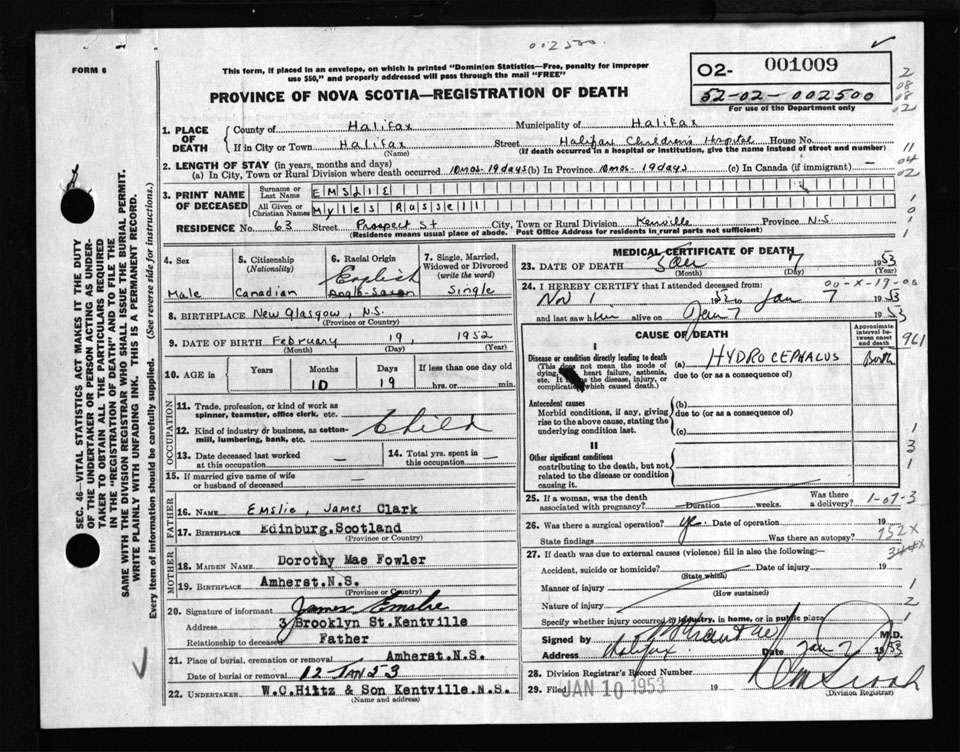 002500
FORM 6
This form, if placed in an envelope, on which is printed "Dominion Statistics—Free, penalty for improper
use $50," and properly addressed will pass through the mail "FREE"
PROVINCE OF NOVA SCOTIA—REGISTRATION OF DEATH
02- 001009
52-02-002500
For use of the Department only
2
08
08
02
1. PLACE OF DEATH
County of Halifax Municipality of Halifax
If in City or Town Halifax Street Halifax Children's Hospital House No.
(Name) (If death occurred in a hospital or institution, give the name instead of street and number)
11
2. LENGTH OF STAY (in years, months and days)
(a) In City, Town or Rural Division where death occurred 10mos. 19days (b) In Province 10mos. 19days (c) In Canada (if immigrant) —
04
02
3. PRINT NAME OF DECEASED
Surname or Last Name EMSLIE
All Given or Christian Names Myles Russell
RESIDENCE No. 63 Street Prospect St City, Town or Rural Division Kenville Province N.S.
(Residence means usual place of abode. Post Office Address for residents in rural parts not sufficient)
1
0
1
4. Sex
Male
5. Citizenship
(Nationality)
Canadian
6. Racial Origin
English
Anglo-Saxon
7. Single, Married, Widowed or Divorced
(write the word)
Single
8. BIRTHPLACE New Glasgow, N.S.
(Province or Country)
9. DATE OF BIRTH February 19, 1952
(Month) (Day) (Year)
10. AGE in
Years Months Days If less than one day old
10 19 hrs. or min.
OCCUPATION
11. Trade, profession, or kind of work as
spinner, teamster, office clerk, etc.
12. Kind of industry or business, as cotton-
mill, lumbering, bank, etc.
Child
13. Date deceased last worked
at this occupation —
14. Total yrs. spent in
this occupation —
15. If married give name of wife
or husband of deceased —
FATHER
16. NAME Emslie, James Clark
17. BIRTHPLACE Edinburg.Scotland
(Province or Country)
MOTHER
18. MAIDEN NAME Dorothy Mae Fowler
19. BIRTHPLACE Amherst.N.S.
(Province or Country)
20. Signature of informant James Emslie
Address 3 Brooklyn St.Kentville
Relationship to deceased Father
21. Place of burial, cremation or removal Amherst.N.S.
Date of burial or removal 12 JAN 53
22. UNDERTAKER W.C.Hiltz & Son Kentville.N.S.
(Name and address)
MEDICAL CERTIFICATE OF DEATH
23. DATE OF DEATH Jan 7 1953
(Month) (Day)
00-X-19-00
24. I HEREBY CERTIFY that I attended deceased from:
Nov 1 1952 to Jan 7 1953
and last saw him alive on Jan 7 1953
CAUSE OF DEATH
Approximate interval between onset and death
I
Disease or condition directly leading to death
(This does not mean the mode of
dying, heart failure, asthenia,
etc. It means the disease, injury, or
complication which caused death.)
(a) HYDROCEPHALUS Birth
due to (or as a consequence of)
Antecedent causes
Morbid conditions, if any, giving
rise to the above cause, stating the
underlying condition last.
(b)
due to (or as a consequence of)
(c)
II
Other significant conditions
contributing to the death, but not
related to the disease or condition
causing it.
1
3
1
25. If a woman, was the death
associated with pregnancy? Duration weeks. Was there a delivery?
1-07-3
26. Was there a surgical operation? yes. Date of operation 19
State findings Was there an autopsy?
752X
344X
27. If death was due to external causes (violence) fill in also the following:—
Accident, suicide or homicide? Date of injury 19
(State which)
Manner of injury
(How sustained)
1
Nature of injury
2
Specify whether injury occurred in industry, in home, or in public place
Signed by M.D.
Address Halifax Date Jan 7 1953
28. Division Registrar's Record Number
29. Filed JAN 10 1953 19
(Division Registrar)
SEC. 46—VITAL STATISTICS ACT MAKES IT THE DUTY
OF THE UNDERTAKER OR PERSON ACTING AS UNDER-
TAKER TO OBTAIN ALL THE PARTICULARS REQUIRED
IN THE "REGISTRATION OF DEATH" AND TO FILE THE
SAME WITH THE DIVISION REGISTRAR WHO SHALL ISSUE THE BURIAL PERMIT.
WRITE PLAINLY WITH UNFADING INK. THIS IS A PERMANENT RECORD.
Every item of information should be carefully supplied. (See reverse side for instructions.)